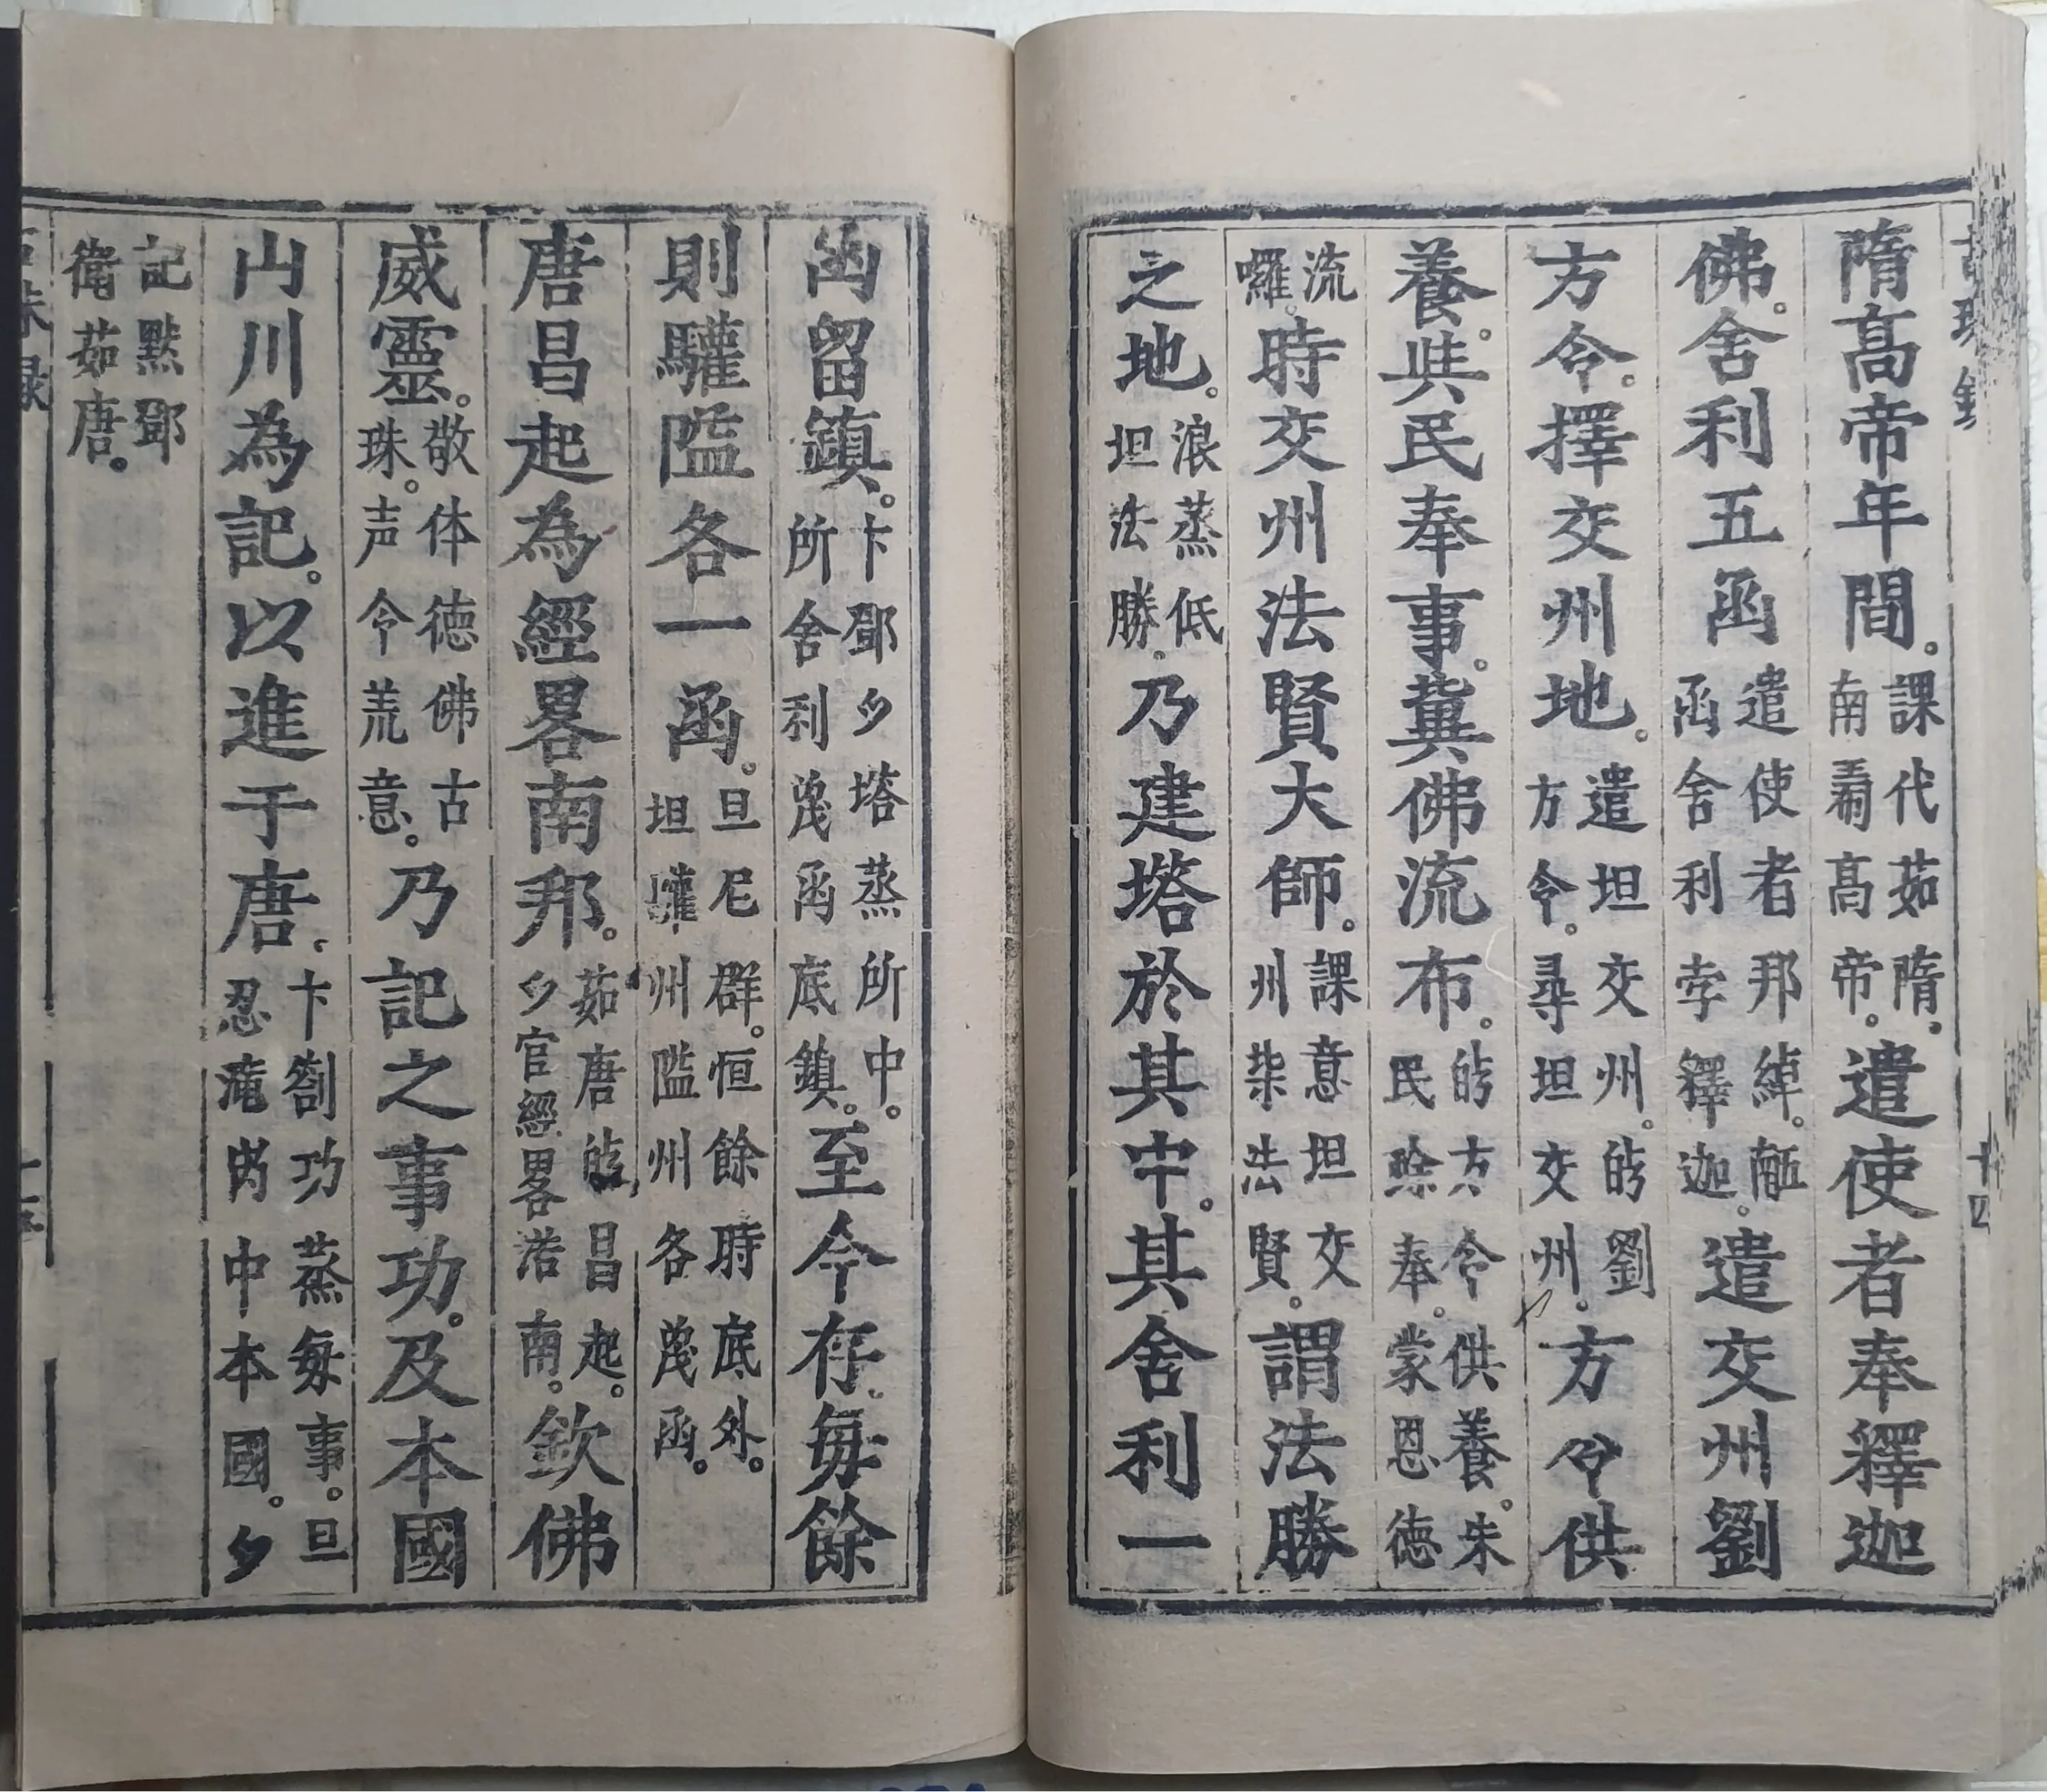 古珠錄 十四
隋髙帝年間。課代茹隋。南𥪝髙帝。遣使者奉釋迦
佛。舍利五函遣使者邦綽。𦤾函舍利孛釋迦。遣交州劉
方令。擇交州地。遣坦交州。𠸜劉方令。尋坦交州。方令供
養。與民奉事。冀佛流布。𠸜方令供養。朱民除奉。蒙恩德
流囉。時交州法賢大師。課意坦交州柴法賢。謂法勝
之地。浪蒸低坦法勝。乃建塔於其中。其舍利一
函留鎮。卞鄧𫢩塔蒸所中。所舍利𠬠函底鎮。至今存。每餘
則驩隘各一函。旦尼群。恒餘時底外。坦驩州隘州各𠬠函。
唐昌起為經畧南邦。茹唐𠸜昌起。𫢩官經畧浩南。欽佛
威靈。敬体德佛古珠。声令荒意。乃記之事功。及本國
山川為記。以進于唐。卞劄功蒸每事。旦忍淹𡶀中本國。𫢩
記㸃鄧衛茹唐。